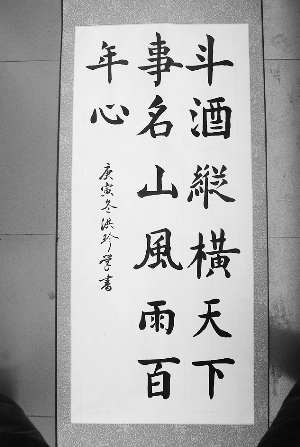 斗酒縱橫天下
事名山風雨百
年心
庚寅冬洪珍學書